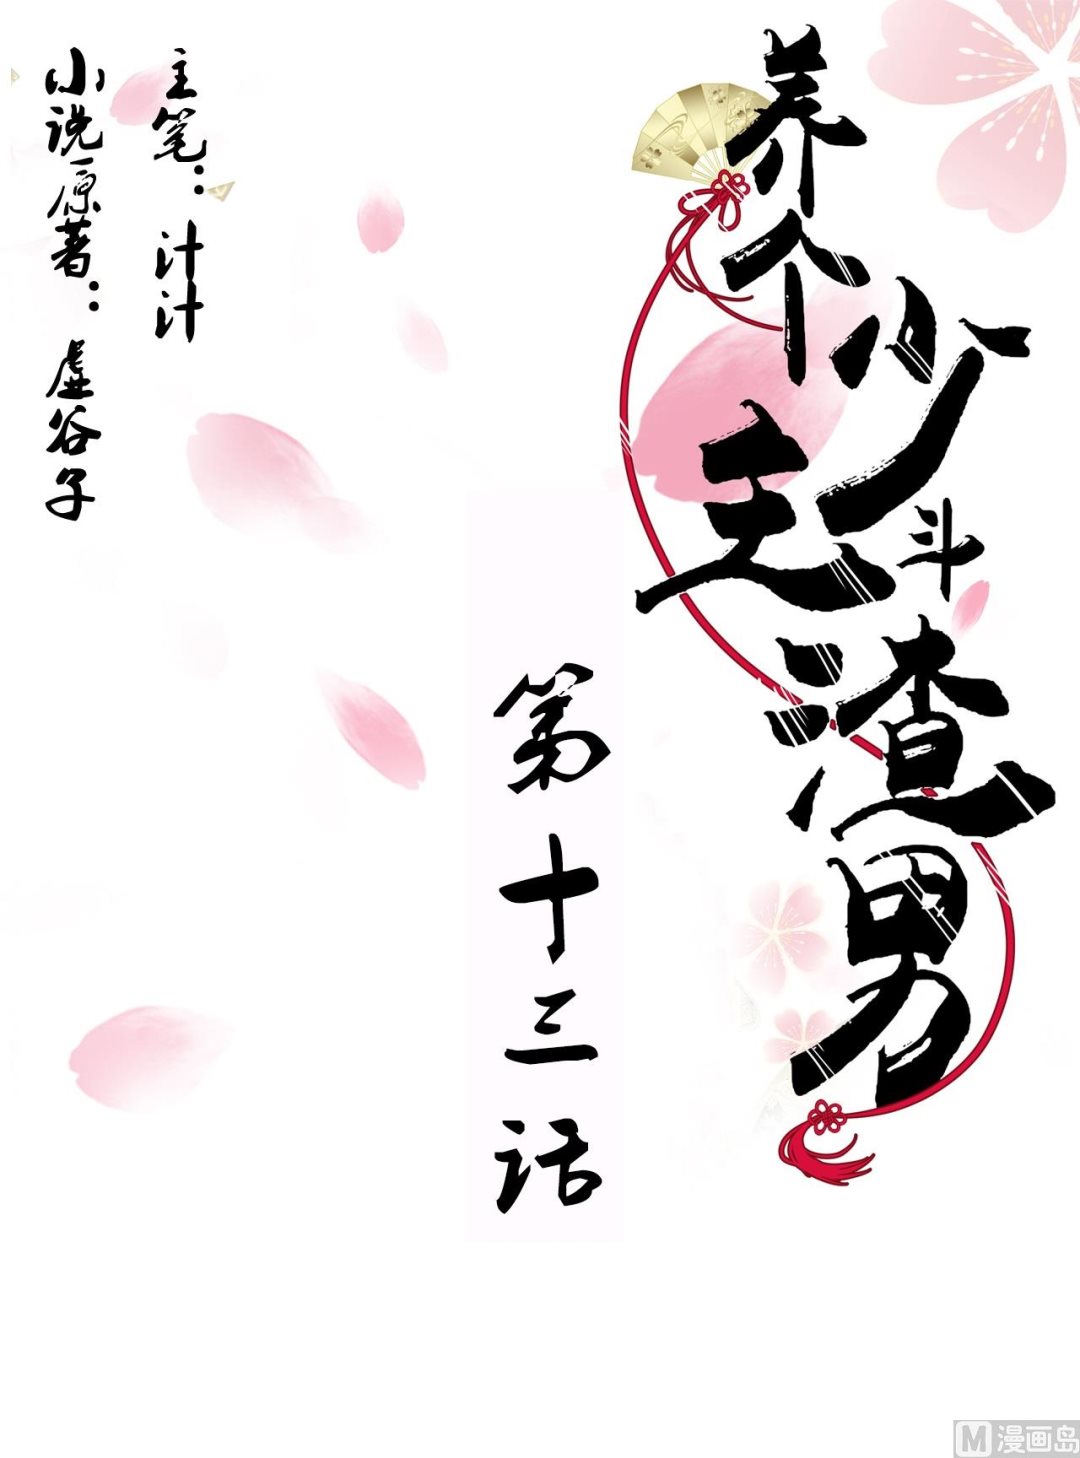 养个少主
斗渣男
第十三话
主笔：计计
小说原著：虚谷子
M漫画岛